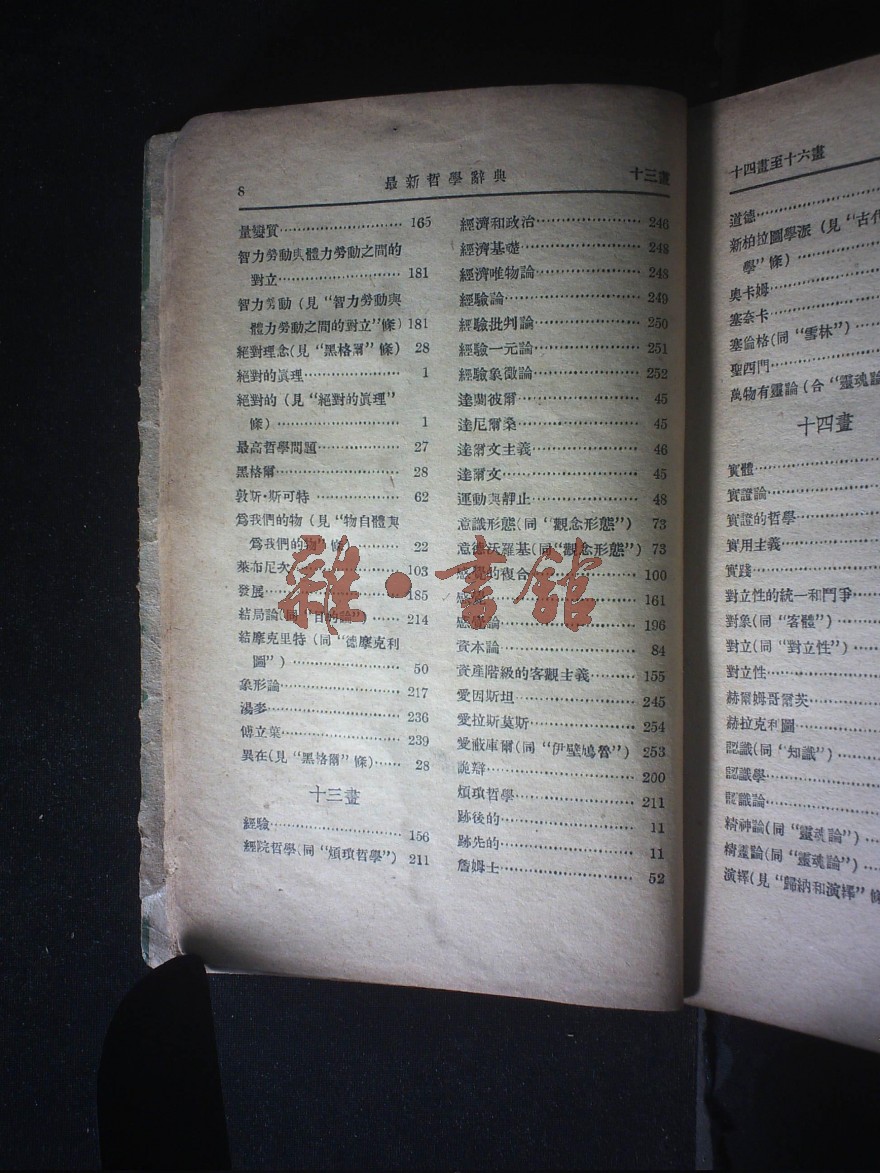 8 最新哲學辭典 十三畫
量變質 165
智力勞動與體力勞動之間的
對立 181
智力勞動（見“智力勞動與
體力勞動之間的對立”條）181
絕對理念（見“黑格爾”條） 28
絕對的眞理 1
絕對的（見“絕對的眞理”
條） 1
最高哲學問題 27
黑格爾 28
敦斯·斯可特 62
爲我們的物（見“物自體與
爲我們的物”條 22
萊布尼次 103
發展 185
結局論（同“目的論” 214
結摩克里特（同“德摩克利
圖”） 50
象形論 217
湯麥 236
傅立葉 239
異在（見“黑格爾”條） 28
十三畫
經驗 156
經院哲學（同“煩瑣哲學”） 211
經濟和政治 246
經濟基礎 248
經濟唯物論 248
經驗論 249
經驗批判論 250
經驗一元論 251
經驗象徵論 252
達蘭彼爾 45
達尼爾桑 45
達爾文主義 46
達爾文 45
運動與靜止 48
意識形態（同“觀念形態”） 73
意德沃羅基（同“觀念形態”） 73
感覺的複合 100
感覺 161
感覺論 196
資本論 84
資產階級的客觀主義 155
愛因斯坦 245
愛拉斯莫斯 254
愛庫爾（同“伊壁鳩魯”） 253
詭辯 200
煩瑣哲學 211
跡後的 11
跡先的 11
詹姆士 52
雜·書館
十四畫至十六畫
道德
新柏拉圖學派（見“古代
學”條）
奧卡姆
塞奈卡
塞倫格（同“雪林”）
聖西門
萬物有靈論（合“靈魂論
十四畫
實體
實證論
實證的哲學
實用主義
實踐
對立性的統一和鬥爭
對象（同“客體”）
對立（同“對立性”）
對立性
赫爾姆哥爾茨
赫拉克利圖
認識（同“知識”）
認識學
認識論
精神論（同“靈魂論”）
精靈論（同“靈魂論”）
演繹（見“歸納和演繹”條